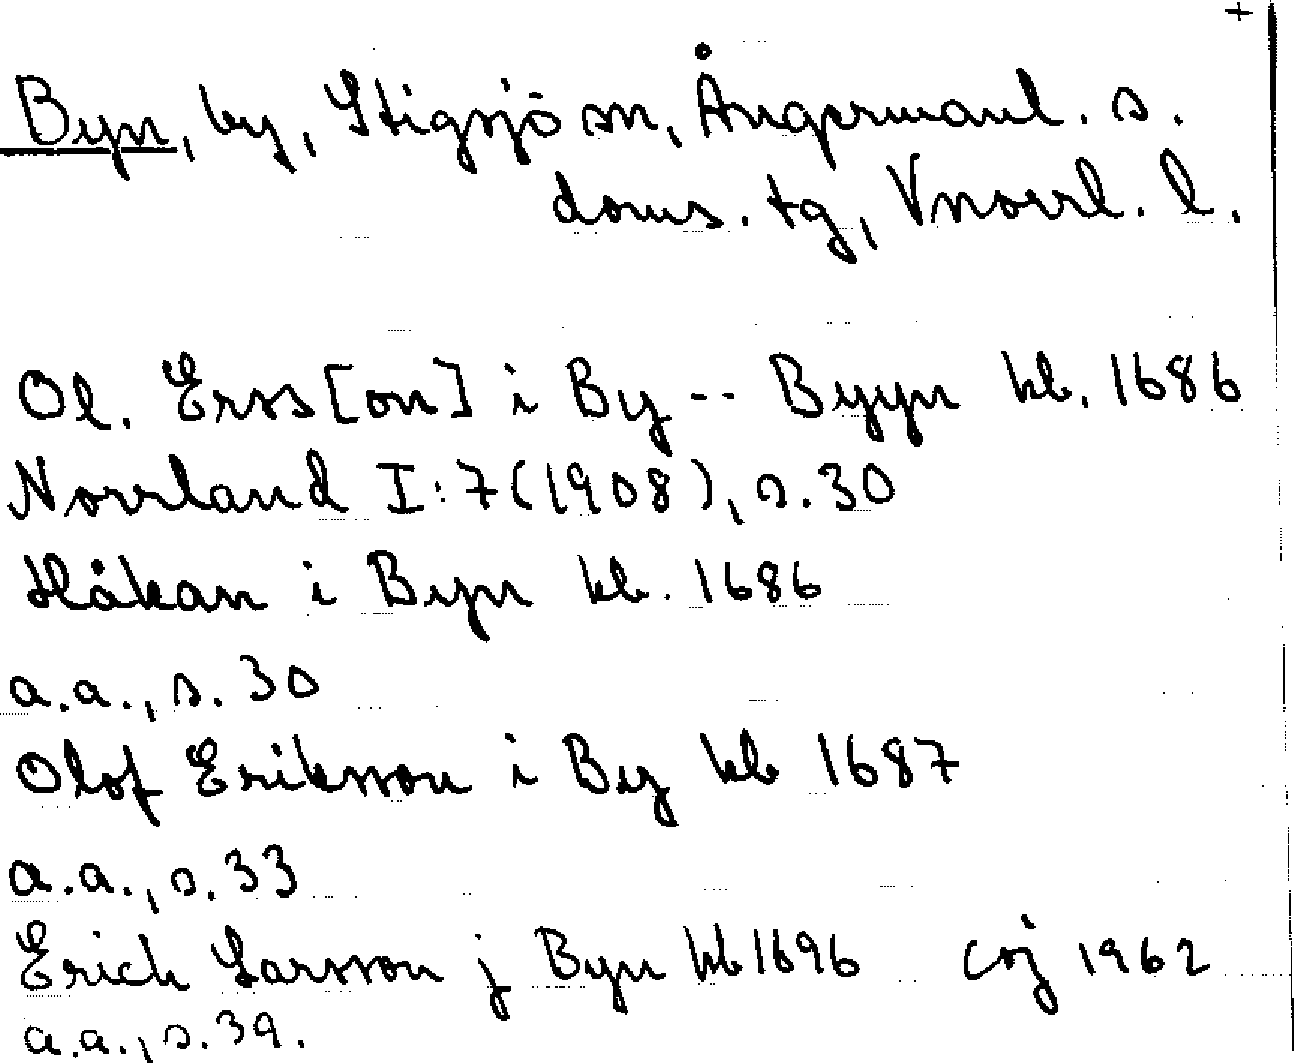 +
Byn, by, Stigsjö sn, Ångermanl. s.
doms. tg, Vnorrl. l.
Ol. Erss[on] i By -- Byyn kb. 1686
Norrland I:7(1908), s.30
Håkan i Byn kb. 1686
a.a., s.30
Olof Eriksson i By kb 1687
a.a., s.33
Erich Larsson j Byn kb 1696 CÖJ 1962
a.a., s.39.